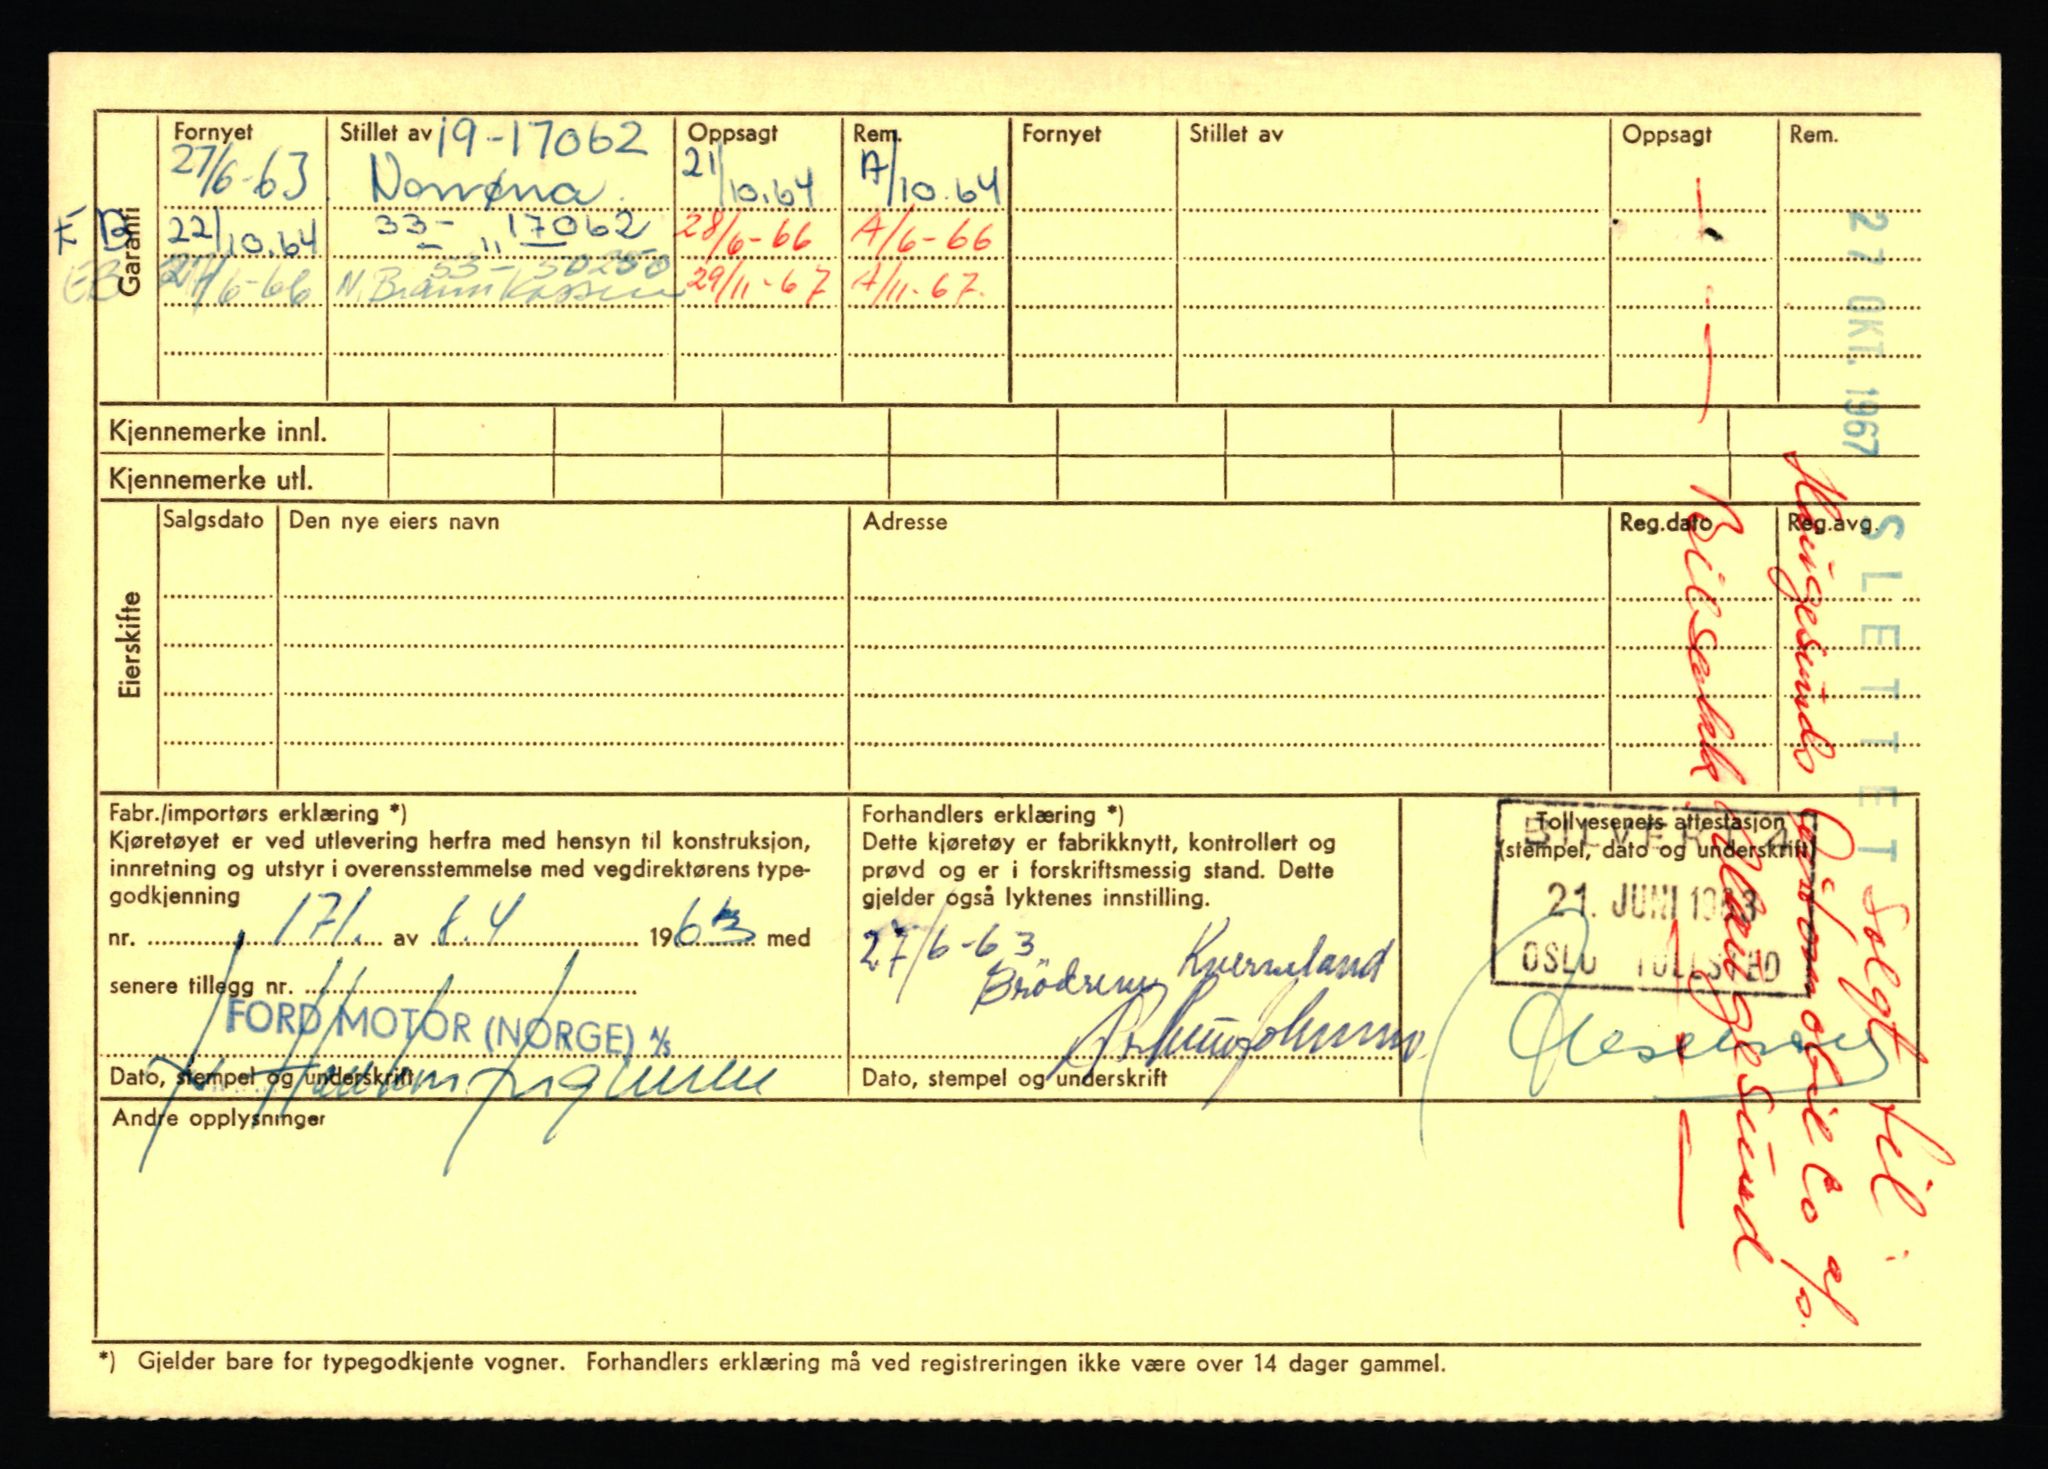 Fornyet Stillet av 19-17062 Oppsagt Rem. Fornyet Stillet av Oppsagt Rem.
27/6-63 Norrøna 21/10.64 A/10.64
Garanti
EB 22/10.64 33- " 17062 28/6-66 A/6-66
EB 33-50250
/6-66 N. Brann Kassen 29/11-67 A/11-67.
Kjennemerke innl.
Kjennemerke utl.
Eierskifte
Salgsdato Den nye eiers navn Adresse Reg.dato Reg.avg.
27 OKT. 1967 SLETTET
Solgt til:
Haugesunds Automobil Co a/s.
Bilsakk. Haugesund
Fabr./importørs erklæring *)
Kjøretøyet er ved utlevering herfra med hensyn til konstruksjon,
innretning og utstyr i overensstemmelse med vegdirektørens type-
godkjenning
nr. 171. av 8.4 1963 med
senere tillegg nr.
FORD MOTOR (NORGE) A/S
Dato, stempel og underskrift
Forhandlers erklæring *)
Dette kjøretøy er fabrikknytt, kontrollert og
prøvd og er i forskriftsmessig stand. Dette
gjelder også lyktenes innstilling.
27/6-63
Brödrene Kverneland
Dato, stempel og underskrift
Tollvesenets attestasjon
(stempel, dato og underskrift)
21. JUNI 1963
OSLO TOLLSTED
Andre opplysninger
*) Gjelder bare for typegodkjente vogner. Forhandlers erklæring må ved registreringen ikke være over 14 dager gammel.